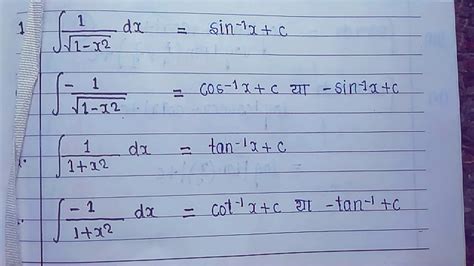 1 ∫ 1/√(1-x²) dx = sin⁻¹x + c
∫ -1/√(1-x²) = cos⁻¹x + c या -sin⁻¹x + c
∫ 1/(1+x²) dx = tan⁻¹x + c
∫ -1/(1+x²) dx = cot⁻¹x + c या -tan⁻¹ + c